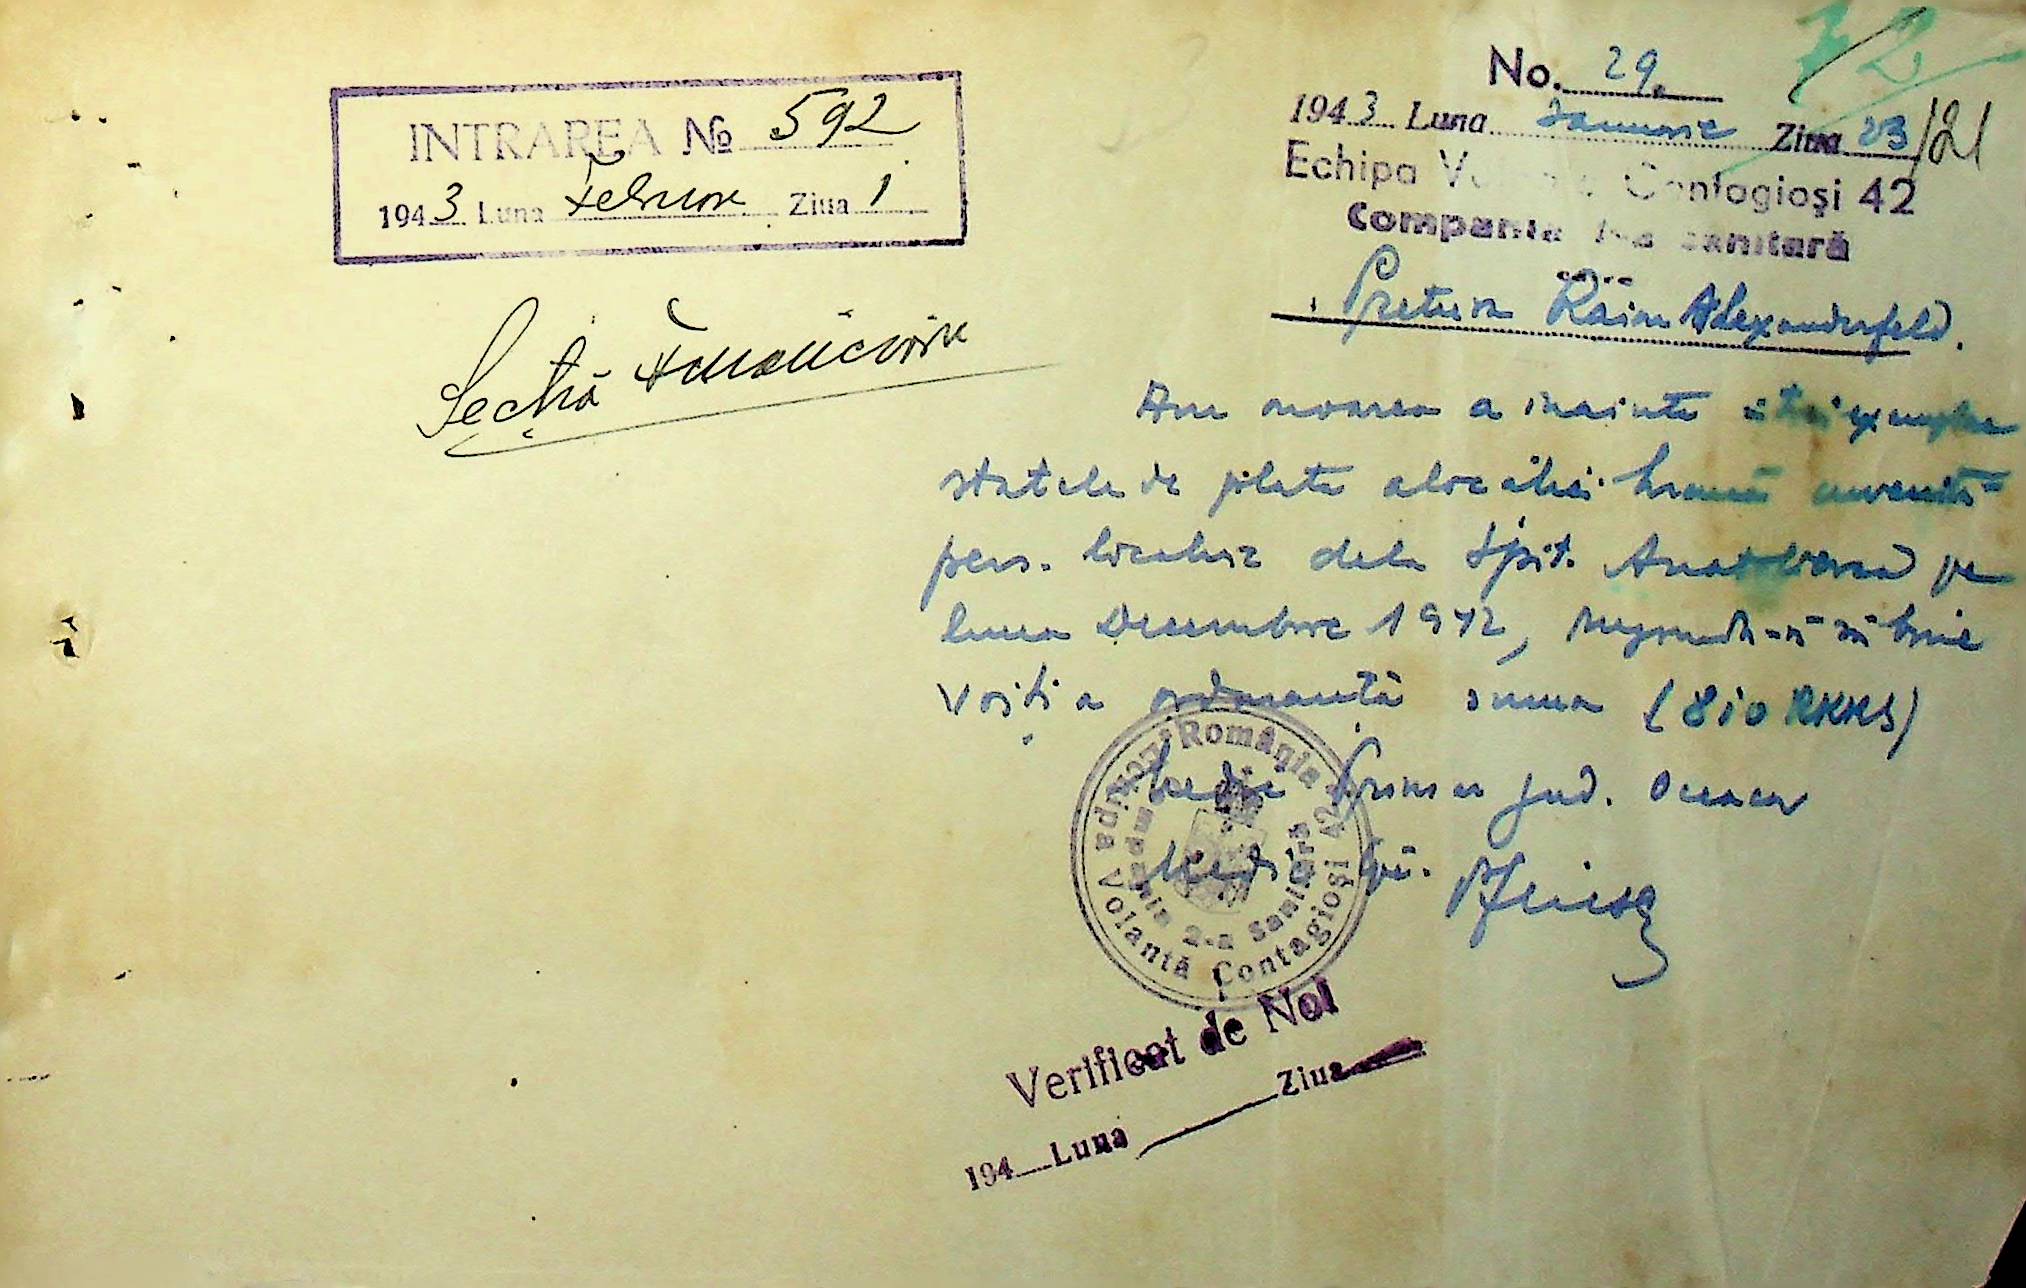 INTRAREA № 592
1943 Luna Februarie Ziua 1
Secția Financiară
72
No. 29.
1943 Luna Ianuarie Ziua 23/21
Echipa Volantă Contagioși 42
Compania sanitară
Pretura Raion Alexanderfeld.
Am onoarea a înainta în trei exemplare
statele de plata alocației hrană cuvenită
pers. localnic dela Spit. pe
luna Decembrie 1942, rugându-vă să bine
Voiți a ordonanță suma (810 RKKS)
Medic Primar Jud. Oceacov
Medic
România Echipa Volantă Contagioși 42
Compania 2-a Sanitară
Verificat de Noi
194 Luna Ziua